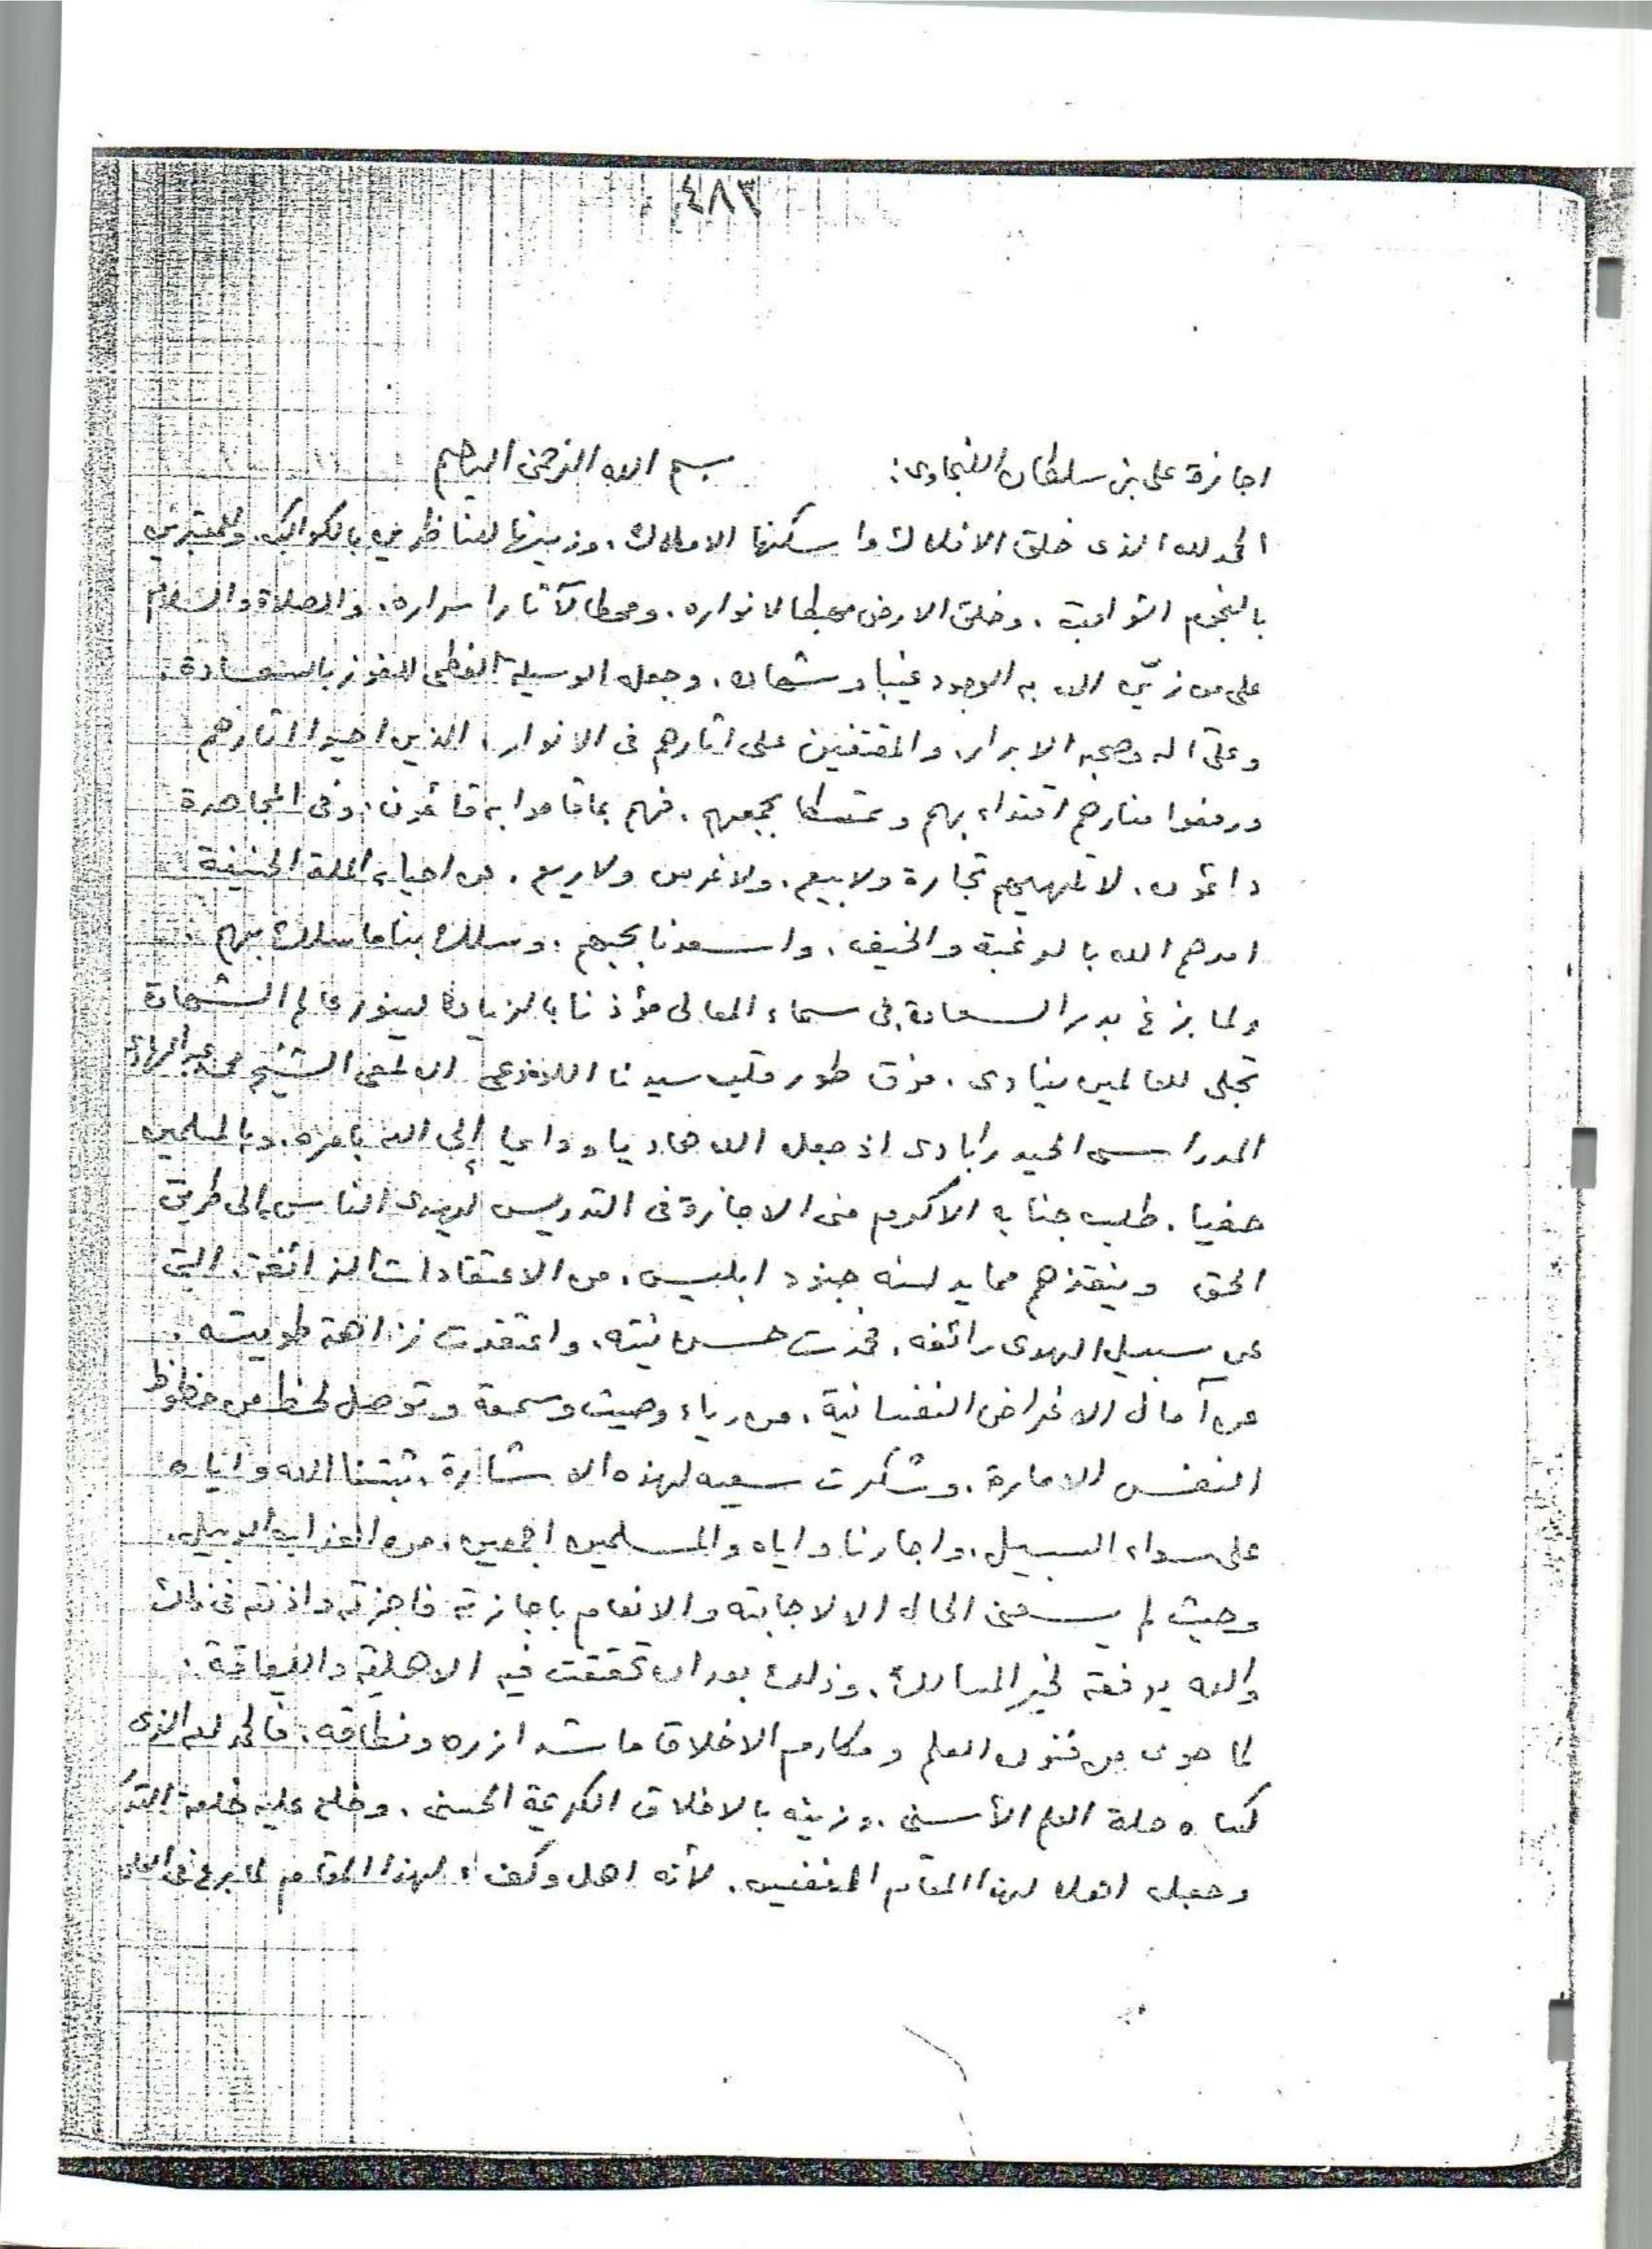 ٤٨٣
اجازة على بن سلطان
بسم الله الرحمن الرحيم
الحمد لله الذى خلق الافلاك واسكنها الاملاك. وزينها للناظرين بالكواكب. وللمعتبرين
بالنجوم الثواقب. وخلق الارض مهبطا لانواره. ومحطا لآثار اسراره. والصلاة والسلام
على من زيّن الله به الوجود غيبا وشهاده. وجعله الوسيلة العظمى للفوز بالسعادة.
وعلى آله وصحبه الابرار. والمقتفين على اثارهم فى الانوار. الذين احيوا اثارهم
ورفعوا منارهم اقتداء بهم وتمسكا بجمعهم. فهم بما قاموا به قائمون. وفى المجاهدة
دائمون. لا تلهيهم تجارة ولا بيع. ولا غرس ولا ريع. عن احياء الملة الحنيفة
امدهم الله بالرغبة والخيفه. واسعدنا بحبهم. وسلك بنا ما سلك بهم
ولما بزغ بدر السعادة فى سماء المعالى مؤذنا بالزيادة لينور عالم الشهادة
تجلى للعالمين ينادى. فوق طور قلب سيدنا اللوذعى الالمعى الشيخ محمد عبد الهادى
المدراسى الحيدرابادى اذ جعله الله هاديا وداعيا إلى الله بامره. وبالمسلمين
حفيا. طلب جنابه الاكرم منى الاجازة فى التدريس ليهدى الناس الى طريق
الحق وينقذهم مما يدلسه جنود ابليس. من الاعتقادات الزائغة. التى
عن سبيل الهدى رائغه. فخرت حسن نيته. واعتقدت نزاهة طويته.
عن آمال الاغراض النفسانية. من رياء وصيت وسمعة وتوصل لحظ من حظوظ
النفس الامارة. وشكرت سعيه لهذه الاشارة. ثبتنا الله واياه
على سواء السبيل. واجارنا واياه والمسلمين اجمعين. من العذاب الوبيل.
وحيث لم يسعنى الحال الا لاجابته والانعام باجازته فاجزته واذنته فى ذلك
والله يوفقه لخير المسالك. وذلك بعد ان تحققت فيه الاهلية واللياقة.
لما حوى من فنون العلم ومكارم الاخلاق ما شد ازره ونطاقه. فالحمد لله الذى
كساه حلة العلم الأسنى. وزينه بالاخلاق الكريمة الحسنى. وخلع عليه خلعة
وجعله اهلا لهذا المقام النفيس. لأنه اهل وكفء لهذا المقام لما برع فى